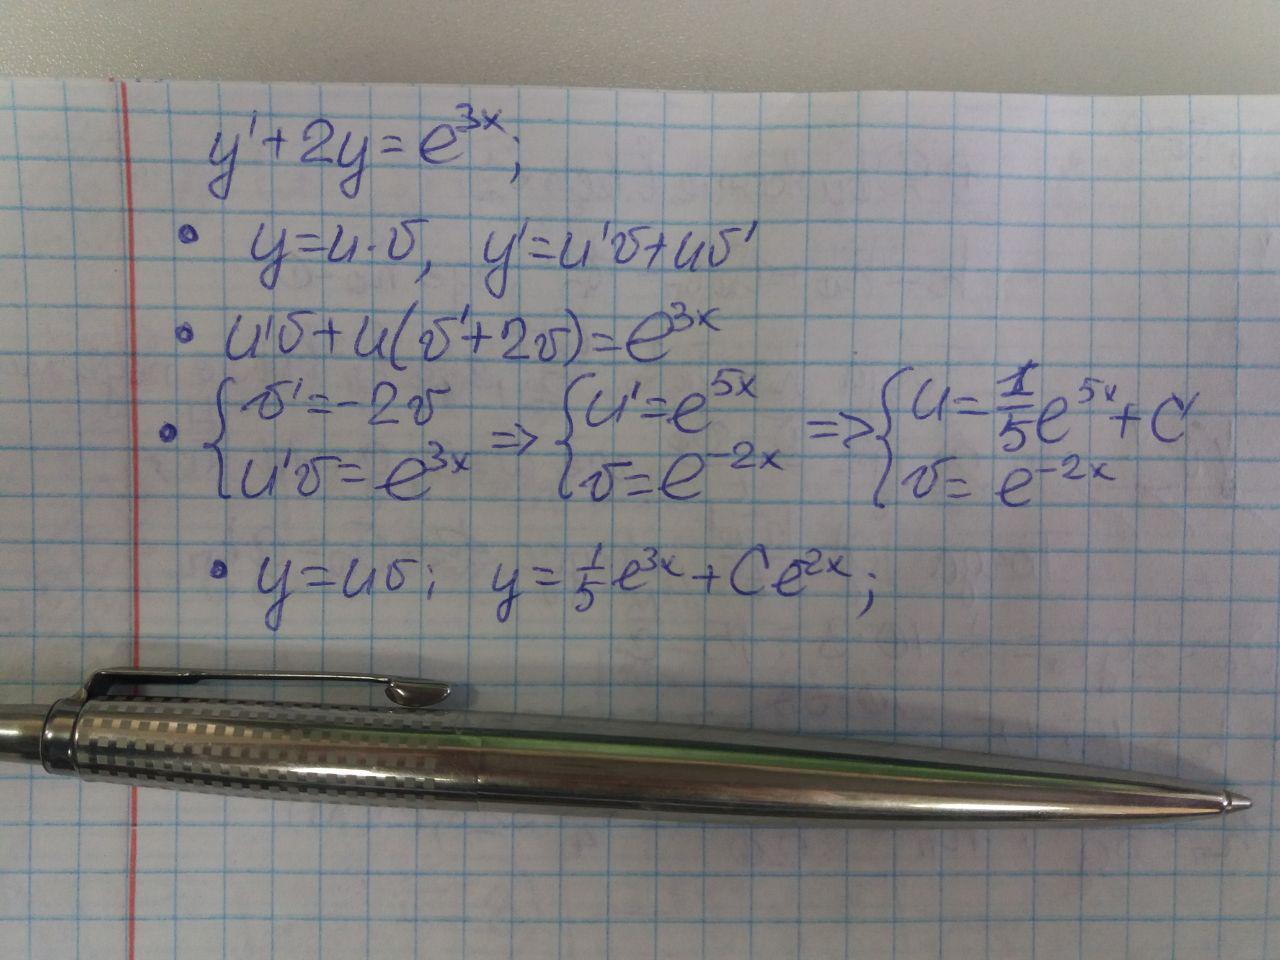 y'+2y=e^{3x};
• y=u·v, y'=u'v+uv'
• u'v+u(v'+2v)=e^{3x}
• { v'=-2v ; u'v=e^{3x} => { u'=e^{5x} ; v=e^{-2x} => { u=1/5 e^{5x}+C ; v=e^{-2x}
• y=uv; y=1/5 e^{3x}+Ce^{2x};